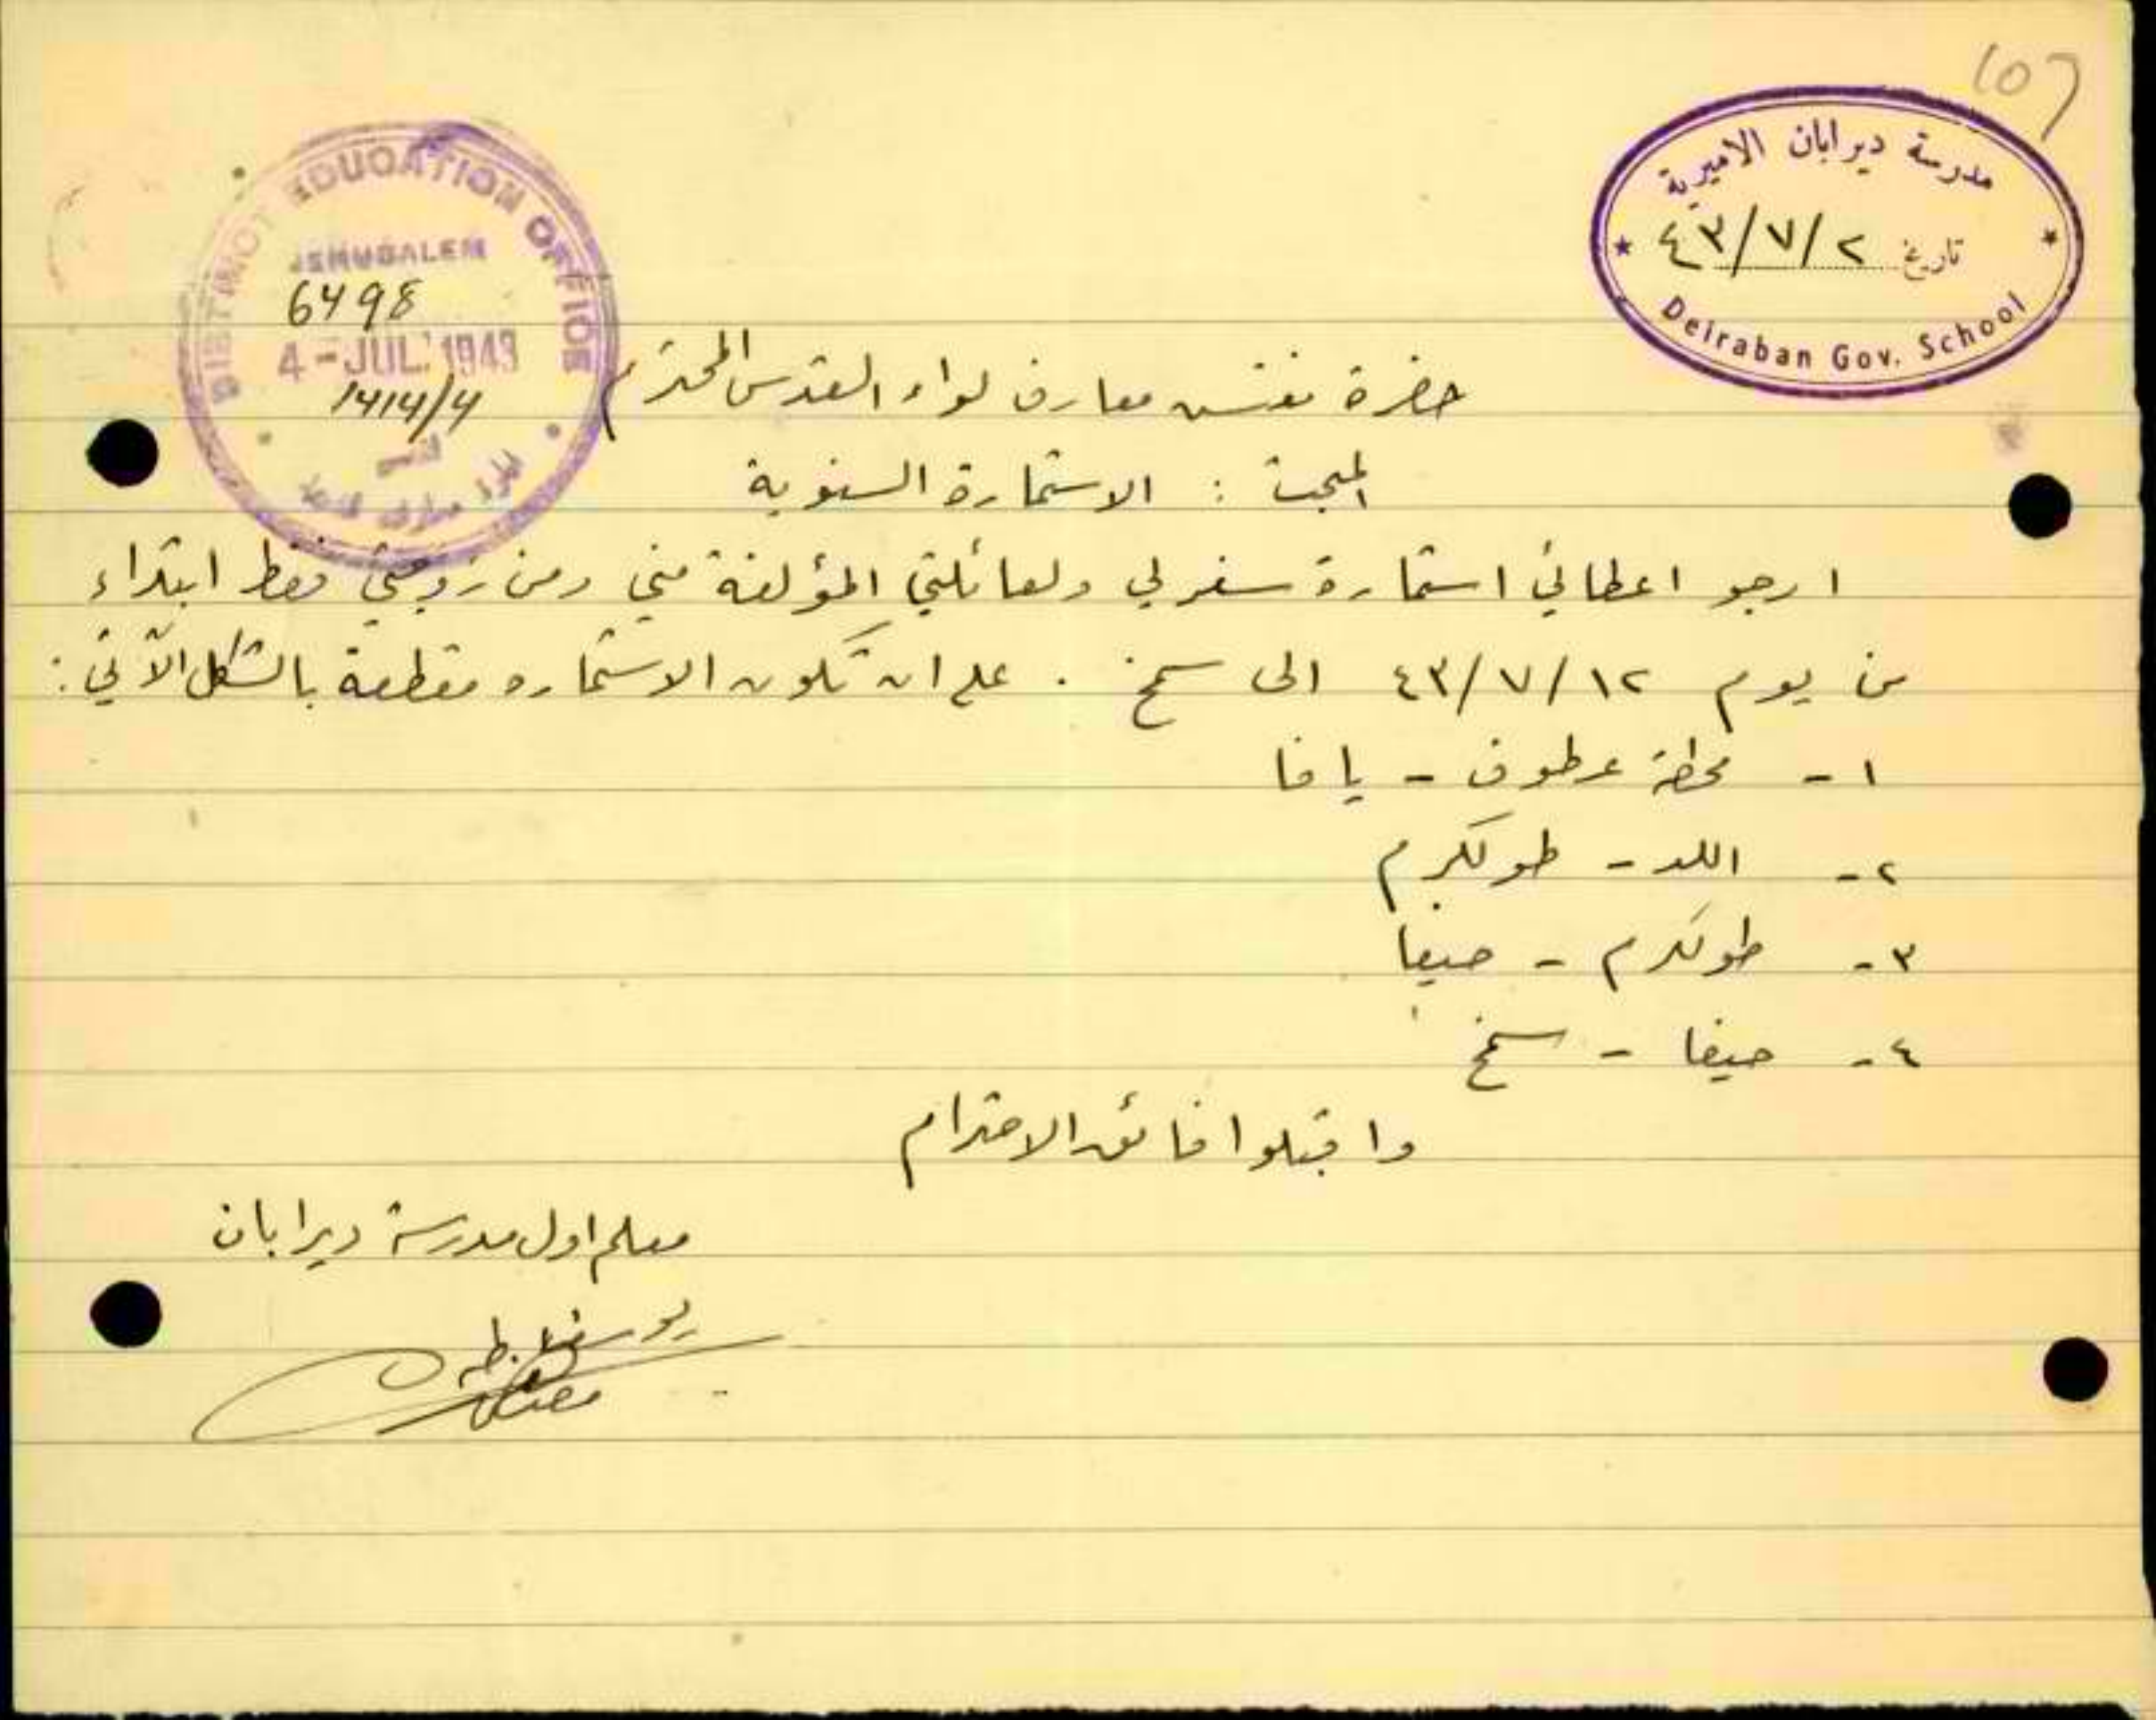 107
مدرسة ديرابان الاميرية
تاريخ ٤٣/٧/٢
Deiraban Gov. School
DISTRICT EDUCATION OFFICE
JERUSALEM
6498
4-JUL. 1943
1414/4
القدس
حضرة مفتش معارف لواء القدس المحترم
المبحث : الاستمارة السنوية
ارجو اعطائي استمارة سفر لي ولعائلتي المؤلفة مني ومن زوجتي فقط ابتداء
من يوم ٤٣/٧/١٢ الى سمخ . على ان تكون الاستماره مقطعة بالشكل الآتي :
١- محطة عرطوف - يافا
٢- اللد - طولكرم
٣- طولكرم - حيفا
٤- حيفا - سمخ
واقبلوا فائق الاحترام
معلم اول مدرسة ديرابان
يوسف